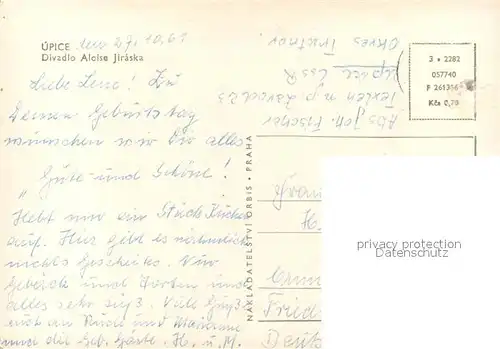 ÚPICE
Divadlo Aloise Jiráska
27.10.61
Liebe Lene! Zu
Deinem Geburtstag
wünschen wir Dir alles
„Gute und Schöne!
Hebt mir ein Stück Kuchen
auf. Hier gibt es nämlich
nichts Gescheites. Nur
Gebäck und Torten und
alles sehr süß. Viele Grüße
auch an Rudi und Marianne
und die Geb. Gäste. H. u. M.
Abs. Joh. Fischer
Texlen n.p. Závod 25
Úpice ČSSR
Okres Trutnov
3 • 2282
057740
F 261356
Kčs 0,70
NAKLADATELSTVÍ ORBIS • PRAHA
Frau
H.
Friede
Deut
privacy protection
Datenschutz